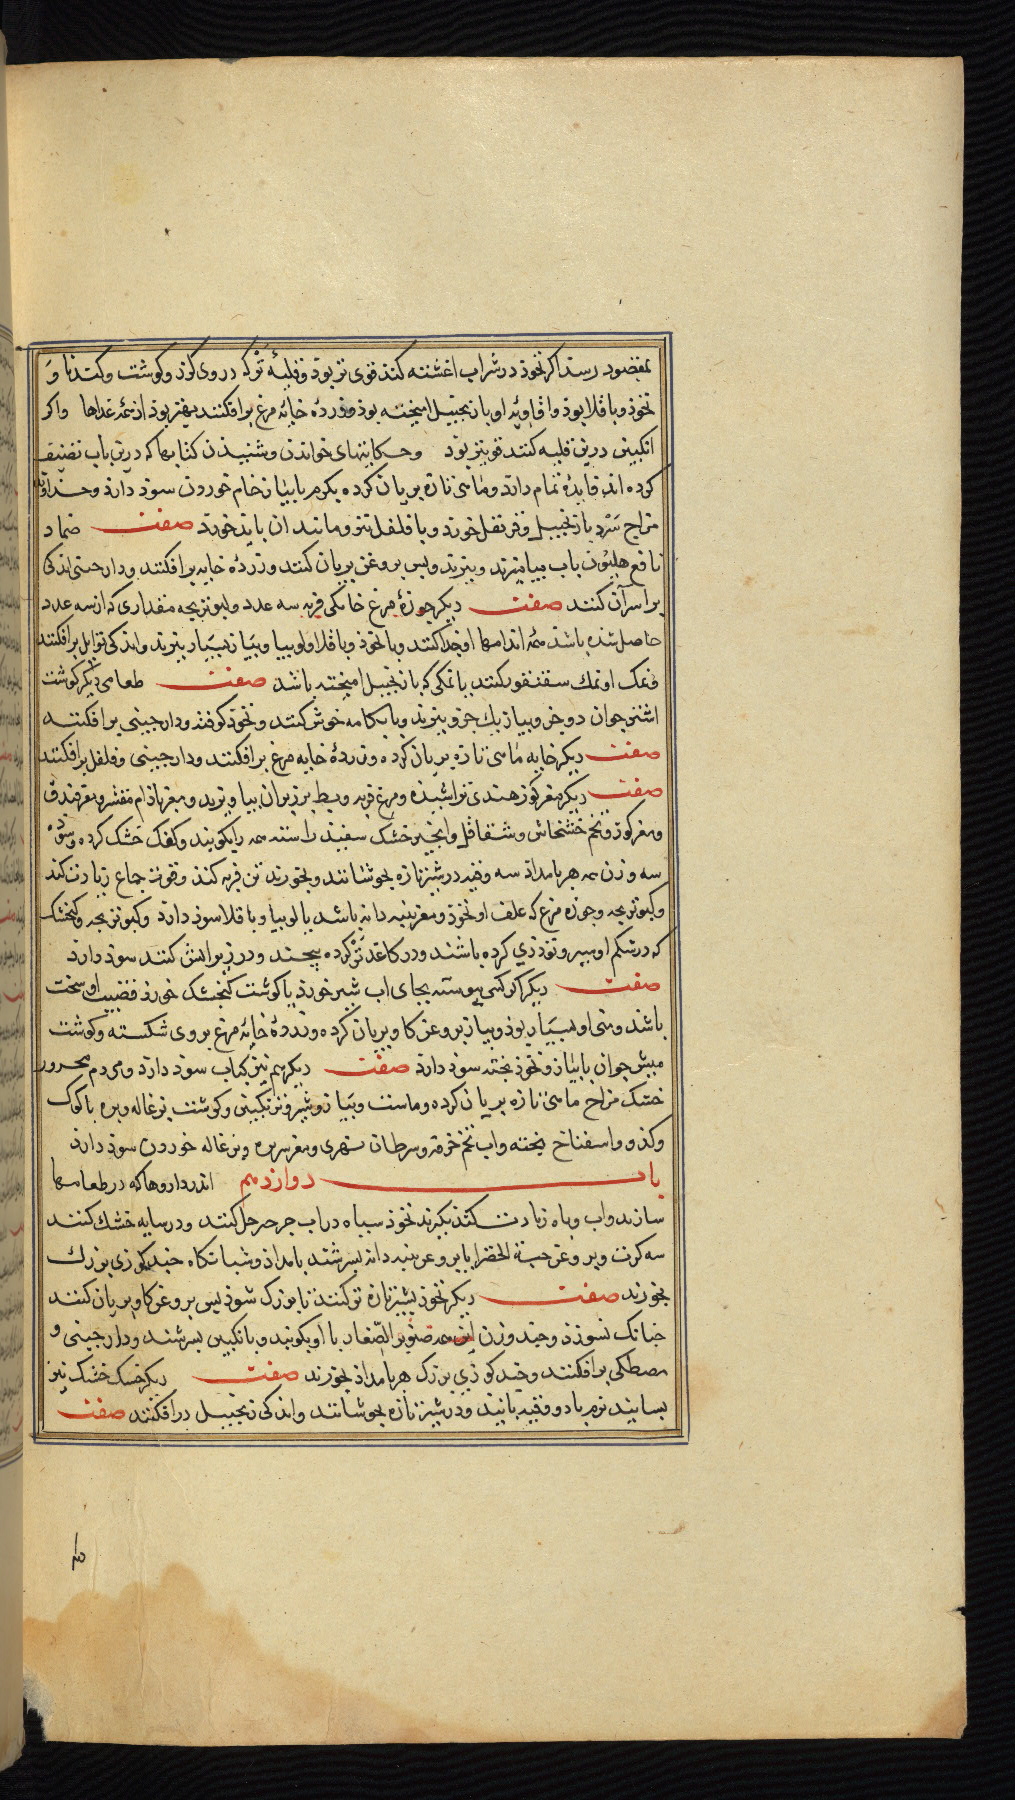 بمقصود رسد اکر نخوذ در شراب اغشته کنند قوی تر بوذ و قلیهٔ تر که در وی کزر و کوشت و کندنا و
نخوذ و باقلا بوذ و افاویه او با زنجبیل امیخته بوذ و زرده خایهٔ مرغ برافکنند بهتر بوذ از همهٔ غذاها واکر
انکبین درین قلیه کنند قویتر بوذ وحکایتهای خواندن و شنیدن کتابها که درین باب تصنیف
کرده اند فایدهٔ تمام دارد و ماهی تازه بریان کرده بکرم با پیاز خام خوردن سوذ دارذ وخداوند
مزاج سرد با زنجبیل و قرنفل خورد و با فلفل تنزو مانند ان باید خورد صفت ضماد
نافع هلیون باب بیامیزند و بپزند و پس بروغن بریان کنند و زردهٔ خایه برافکنند و دارچینی اندکی
بر اسر آن کنند صفت دیکر جوزهٔ مرغ خانکی فربه سه عدد و کبوتر بچه مقداری که از سه عدد
حاصل شده باشد همه اندامها او جدا کنند و با نخوذ و باقلا و لوبیا و پیاز بسیار بپزند و اندکی توابل برافکنند
و نمک او نمک سقنقور کنند یا نمکی که با زنجبیل امیخته باشد صفت طعامی دیکر کوشت
اشتر جوان دو جزو پیاز یک جزو بپزند و با بکامه خوش کنند و نخوذ کوفته و دارچینی برافکنند
صفت دیکر خایه ماهی تازه بریان کرده و زردهٔ خایه مرغ برافکنند و دارچینی و فلفل برافکنند
صفت دیکر مغز کوز هندی تراشیده و مرغ فربه و بط بریان بیاورند و مغز باذام مقشر و مغز فندق
و مغز کوز و تخم خشخاش و شقاقل و انجیر خشک سفید راسته همه را بکوبند و کعک خشک کرده و
سه وزن همه هر بامداذ سه وقیه در شیر تازه بجوشانند و بخورند تن فربه کند و قوت جماع زیادت کند
و کبوتر بچه و جوزه مرغ که علف او نخوذ و مغز پنبه دانه باشد با لوبیا و باقلا سوذ دارد و کبوتر بچه و کنجشک
که در شکم او سیر و توذری کرده باشند و در کاغذ تر کرده پیچند و در زیر اتش کنند سوذ دارد
صفت دیکر اکر کسی پیوسته بجای اب شیر خورذ با کوشت کنجشک خورذ قضیب او سخت
باشد و منی او بسیار بوذ و پیاز بروغن کاو بریان کرده و زردهٔ خایهٔ مرغ بروی شکسته و کوشت
میش جوان با پیاز و نخوذ پخته سوذ دارذ صفت دیکر هم نیز کباب سوذ دارد و مردم محرور
خشک مزاج ماهی تازه بریان کرده و ماست و پیاز و شیر و ترنکبین و کوشت بزغاله و بره با کوک
و کذو و اسفناخ پخته و اب تخم خرفه و سرطان نهری و مغز سربره و بزغاله خوردن سوذ دارذ
باب دوازدهم اندر داروها که در طعامها
سازند و اب و باه زیادت کنند بکیرند نخوذ سیاه در اب جرجیر حل کنند و در سایه خشک کنند
سه کرت و بروغن حبة الخضرا یا بروغن پنبه دانه بسرشند بامداذ و شبانکاه چند کوزی بزرک
بخورند صفت دیکر نخوذ بشیر تازه تر کنند تا بزرک شوذ پس بروغن کاو بریان کنند
چنانک نسوزذ و چند وزن این همه صنوبر الصغار با او بکوبند و با نکبین بسرشند و دارچینی و
مصطکی برافکنند و چند کوزی بزرک هر بامداذ بخورند صفت دیکر خسک خشک نیز
بسایند نرم باد و وقیه پانید و در شیر تازه بجوشانند و اندکی زنجبیل درافکنند صفت